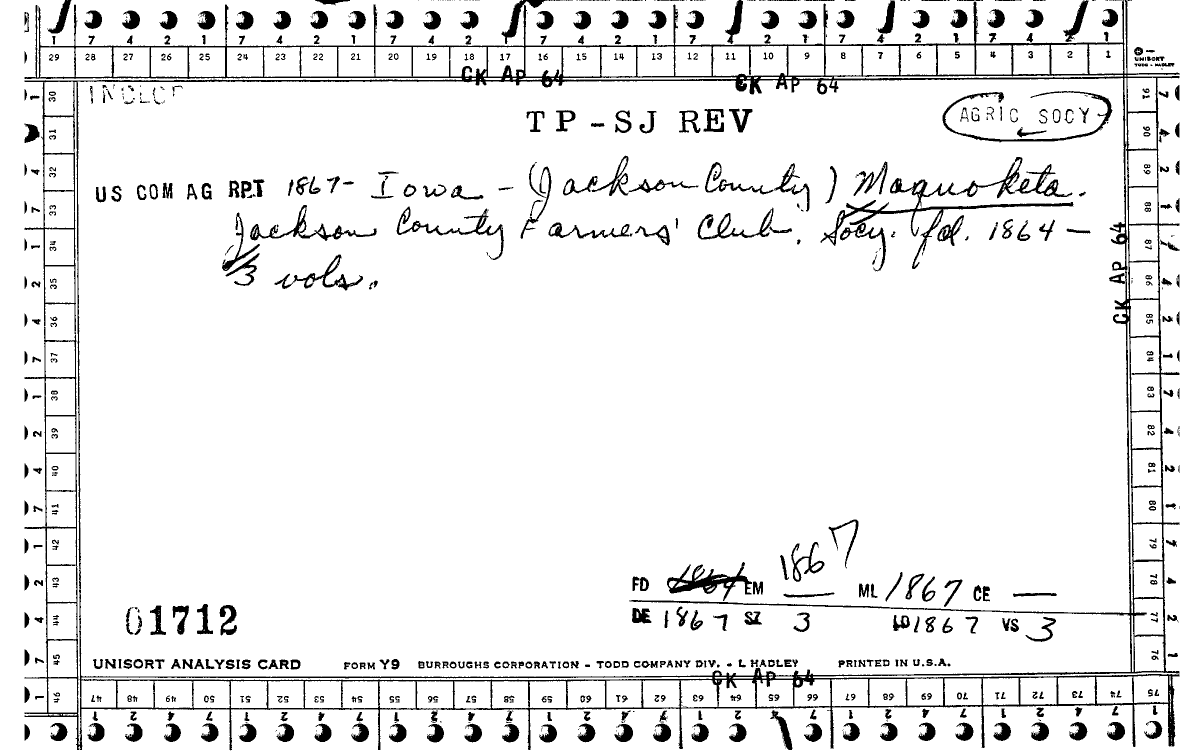 7 4 2 1 7 4 2 1 7 4 2 1 7 4 2 1 7 4 2 1 7 4 2 1 7 4 2 1
29 28 27 26 25 24 23 22 21 20 19 18 17 16 15 14 13 12 11 10 9 8 7 6 5 4 3 2 1
UNISORT
TODD - HADLEY
CK AP 64 CK AP 64
TP-SJ REV
AGRIC SOCY
US COM AG RPT 1867- Iowa - (Jackson County) Maquoketa.
Jackson County Farmers' Club. Socy. fd. 1864 -
3 vols.
CK AP 64
30 31 32 33 34 35 36 37 38 39 40 41 42 43 44 45 46
91 90 89 88 87 86 85 84 83 82 81 80 79 78 77 76 75
FD 1864 EM 1867 ML 1867 CE —
DE 1867 SZ 3 LD 1867 VS 3
01712
UNISORT ANALYSIS CARD FORM Y9 BURROUGHS CORPORATION - TODD COMPANY DIV. - L HADLEY PRINTED IN U.S.A.
CK AP 64
47 48 49 50 51 52 53 54 55 56 57 58 59 60 61 62 63 64 65 66 67 68 69 70 71 72 73 74